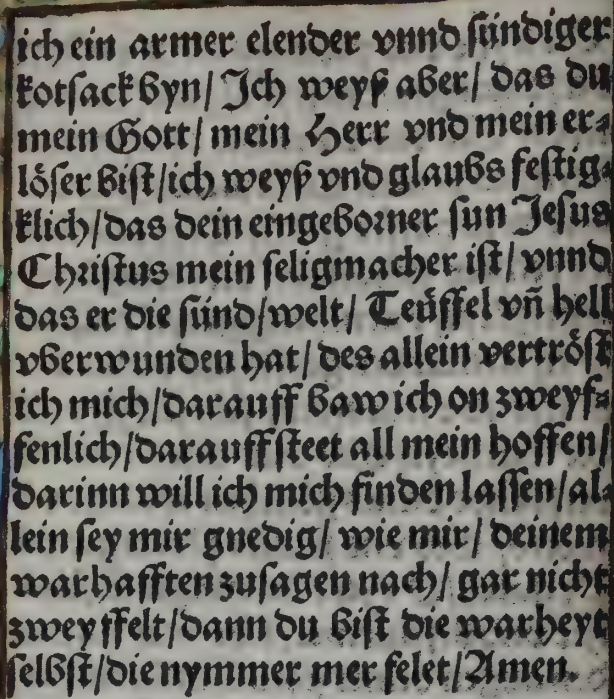 ich ein armer elender vnnd sündiger
kotsack byn/ Ich weyß aber/ das du
mein Gott/ mein Herr vnd mein er⸗
löser bist/ich weyß vnd glaubs festig⸗
klich/das dein eingeborner sun Jesus
Christus mein seligmacher ist/ vnnd
das er die sünd/welt/ Teüffel vñ hell
vberwunden hat/ des allein vertröst
ich mich/darauff baw ich on zweyf⸗
fenlich/darauff steet all mein hoffen/
darinn will ich mich finden lassen/al⸗
lein sey mir gnedig/ wie mir/ deinem
warhafften zusagen nach/ gar nicht
zweyffelt/dann du bist die warheyt
selbst/die nymmer mer felet/Amen.